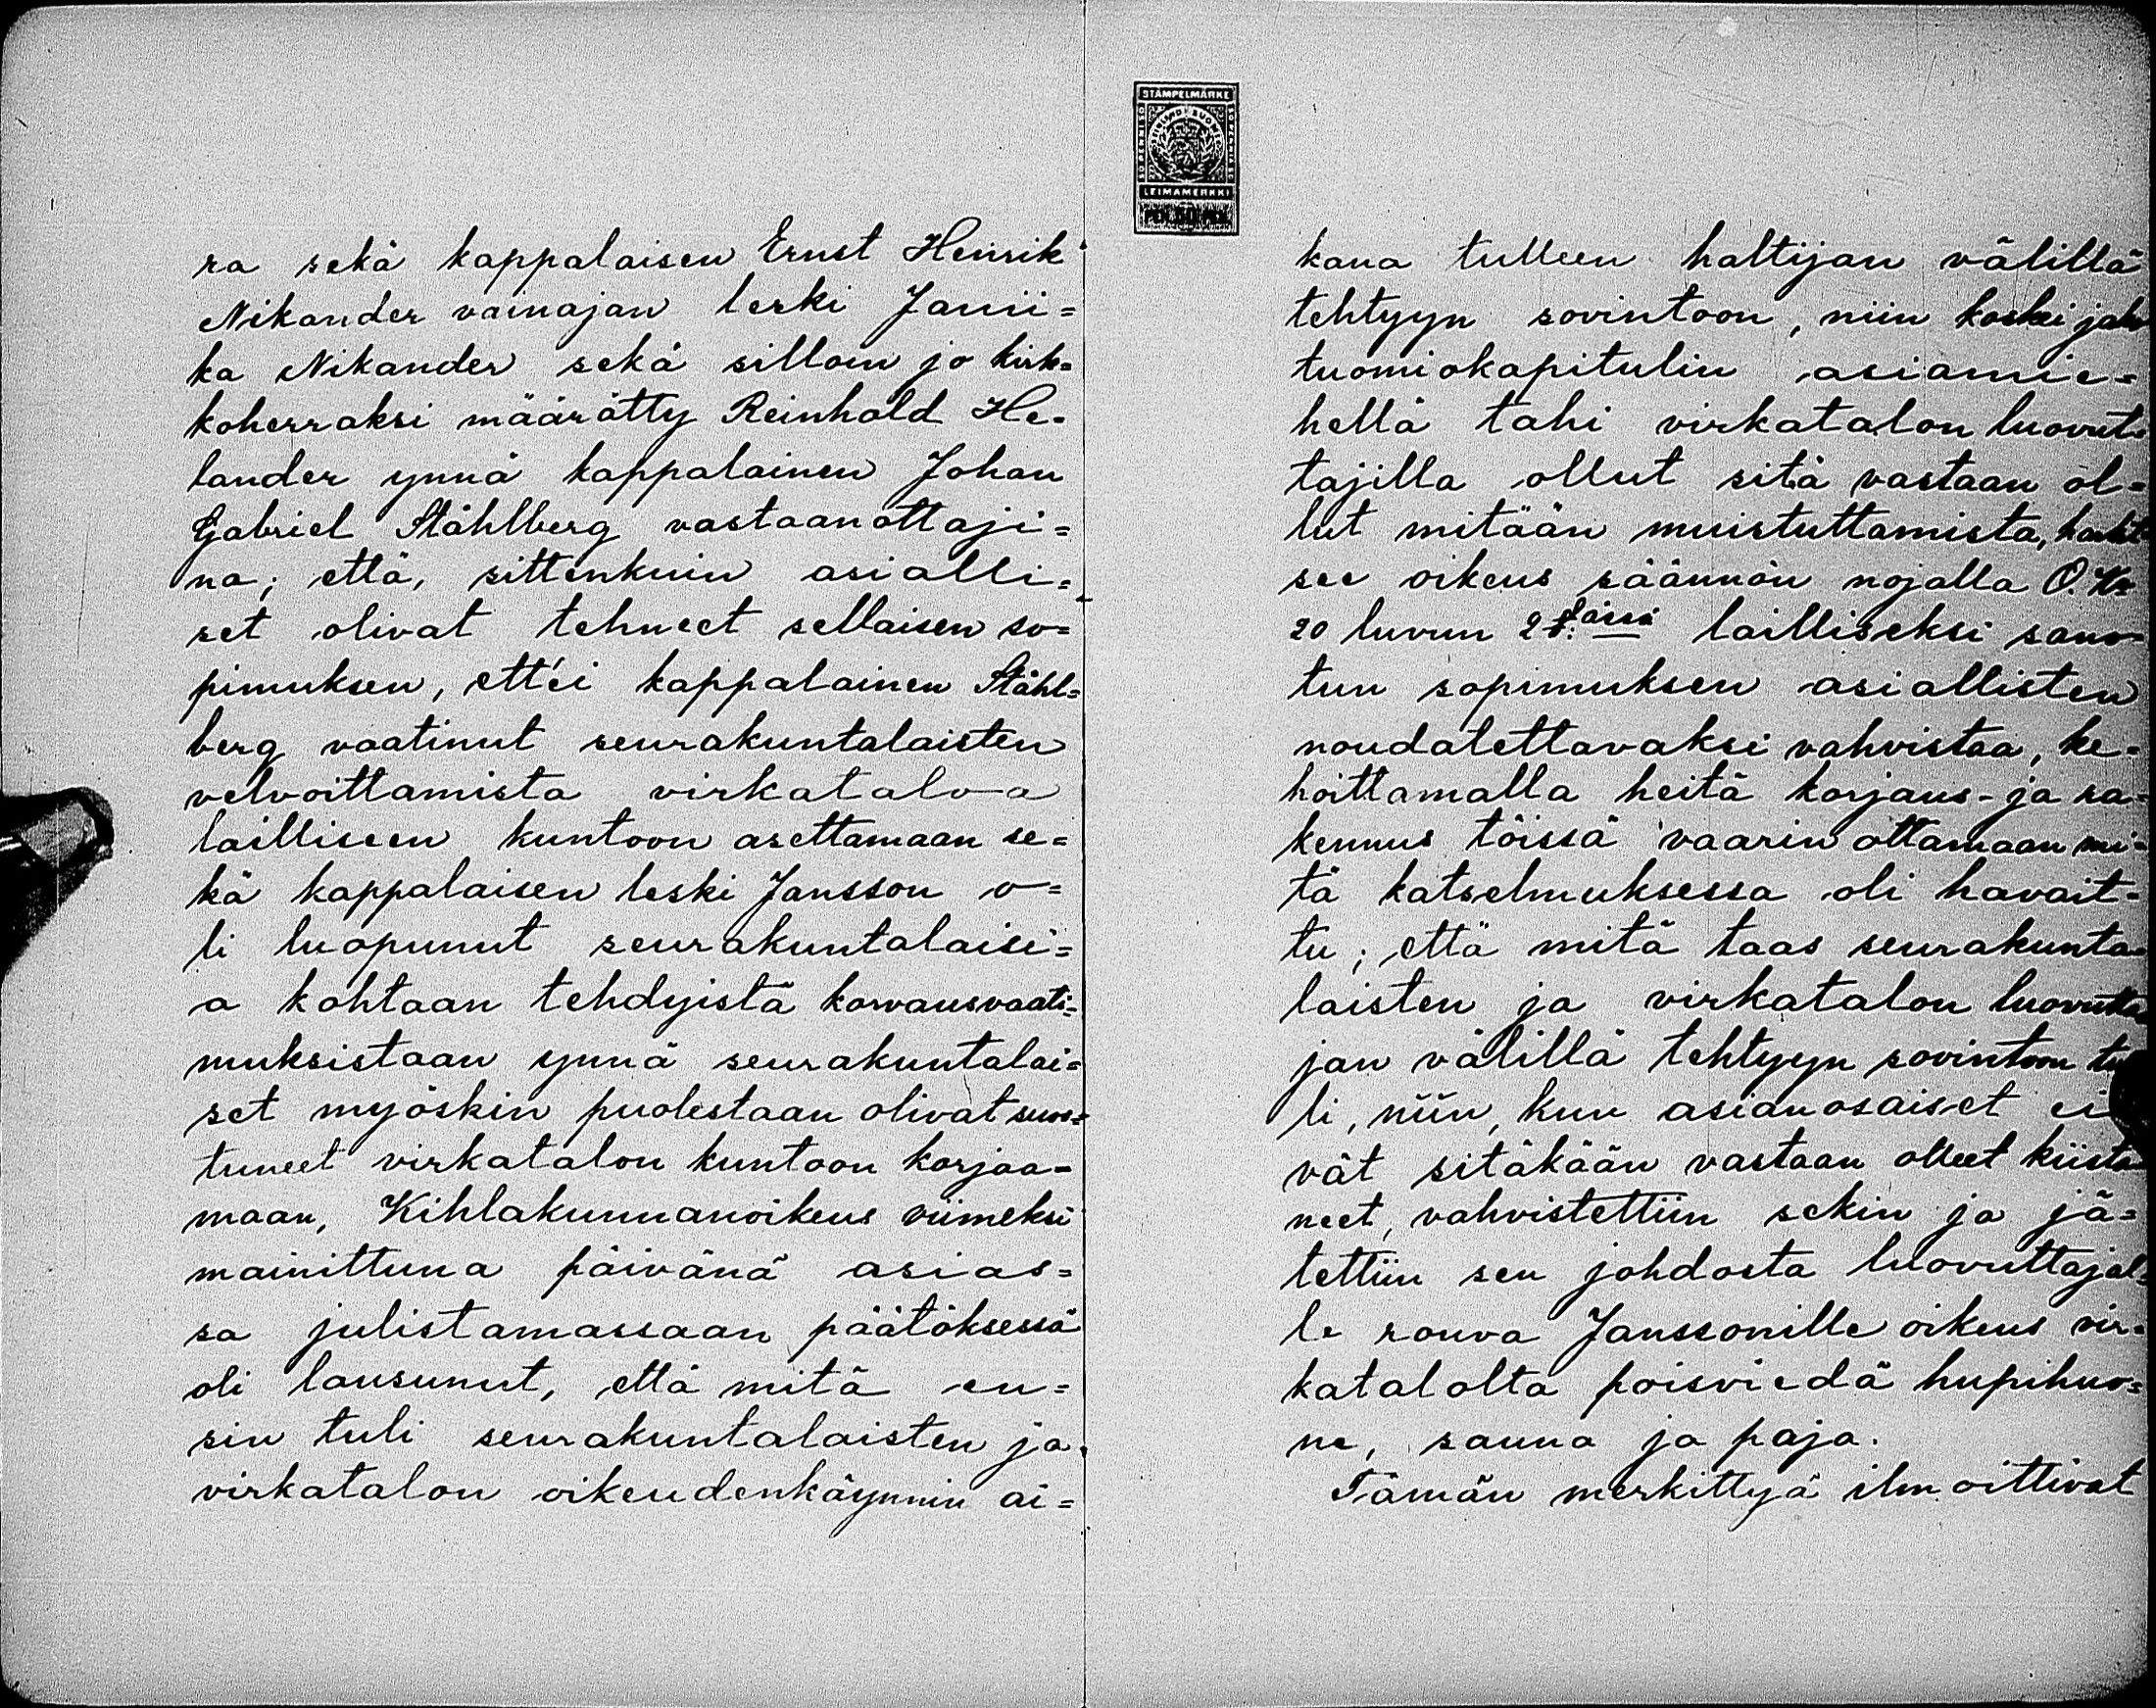 ra sekä kappalaisen Ernst Henrik
Nikander vainajan leski Janni=
ka Nikander sekä silloin jo kirk=
koherraksi määrätty Reinhold He=
lander ynnä kappalainen Johan
Gabriel Ståhlberg vastaanottaji=
na; että, sittenkuin asialli=
set olivat tehneet sellaisen so=
pimuksen, ett'ei kappalainen Ståhl=
berg vaatinut seurakuntalaisten
velvoittamista virkataloa
lailliseen kuntoon asettamaan se=
kä kappalaisen leski Jansson o=
li luopunut seurakuntalaisi=
a kohtaan tehdyistä korvausvaati=
muksistaan ynnä seurakuntalai=
set myöskin puolestaan olivat suos=
tuneet virkatalon kuntoon korjaa=
maan, Kihlakunnanoikeus viimeksi
mainittuna päivänä asias=
sa julistamassaan päätöksessä
oli lausunut, että mitä en=
sin tuli seurakuntalaisten ja
virkatalon oikeudenkäynnin ai=
STÄMPELMÄRKE
FINLAND SUOMI
LEIMAMERKKI
PEN. 50 PEN.
kana tulleen haltijan välillä
tehtyyn sovintoon, niin koska
tuomiokapitulin asiamie=
hellä tahi virkatalon luovut=
tajilla ollut sitä vastaan ol=
lut mitään muistuttamista,
see oikeus säännön nojalla O. K.
20 luvun lailliseksi sano=
tun sopimuksen asiallisten
noudatettavaksi vahvistaa, ke=
hoittamalla heitä korjaus- ja ra=
kennus töissä vaarin ottamaan mi=
tä katselmuksessa oli havait=
tu; että mitä taas seurakunta=
laisten ja virkatalon luovutta=
jan välillä tehtyyn sovintoon tu
li, niin, kun asianosaiset ei
vät sitäkään vastaan olleet kiista
neet, vahvistettiin sekin ja jä=
tettiin sen johdosta luovuttajal=
le rouva Janssonille oikeus vir=
katalolta poisviedä hupihuo=
ne, sauna ja paja.
Tämän merkittyä ilmoittivat